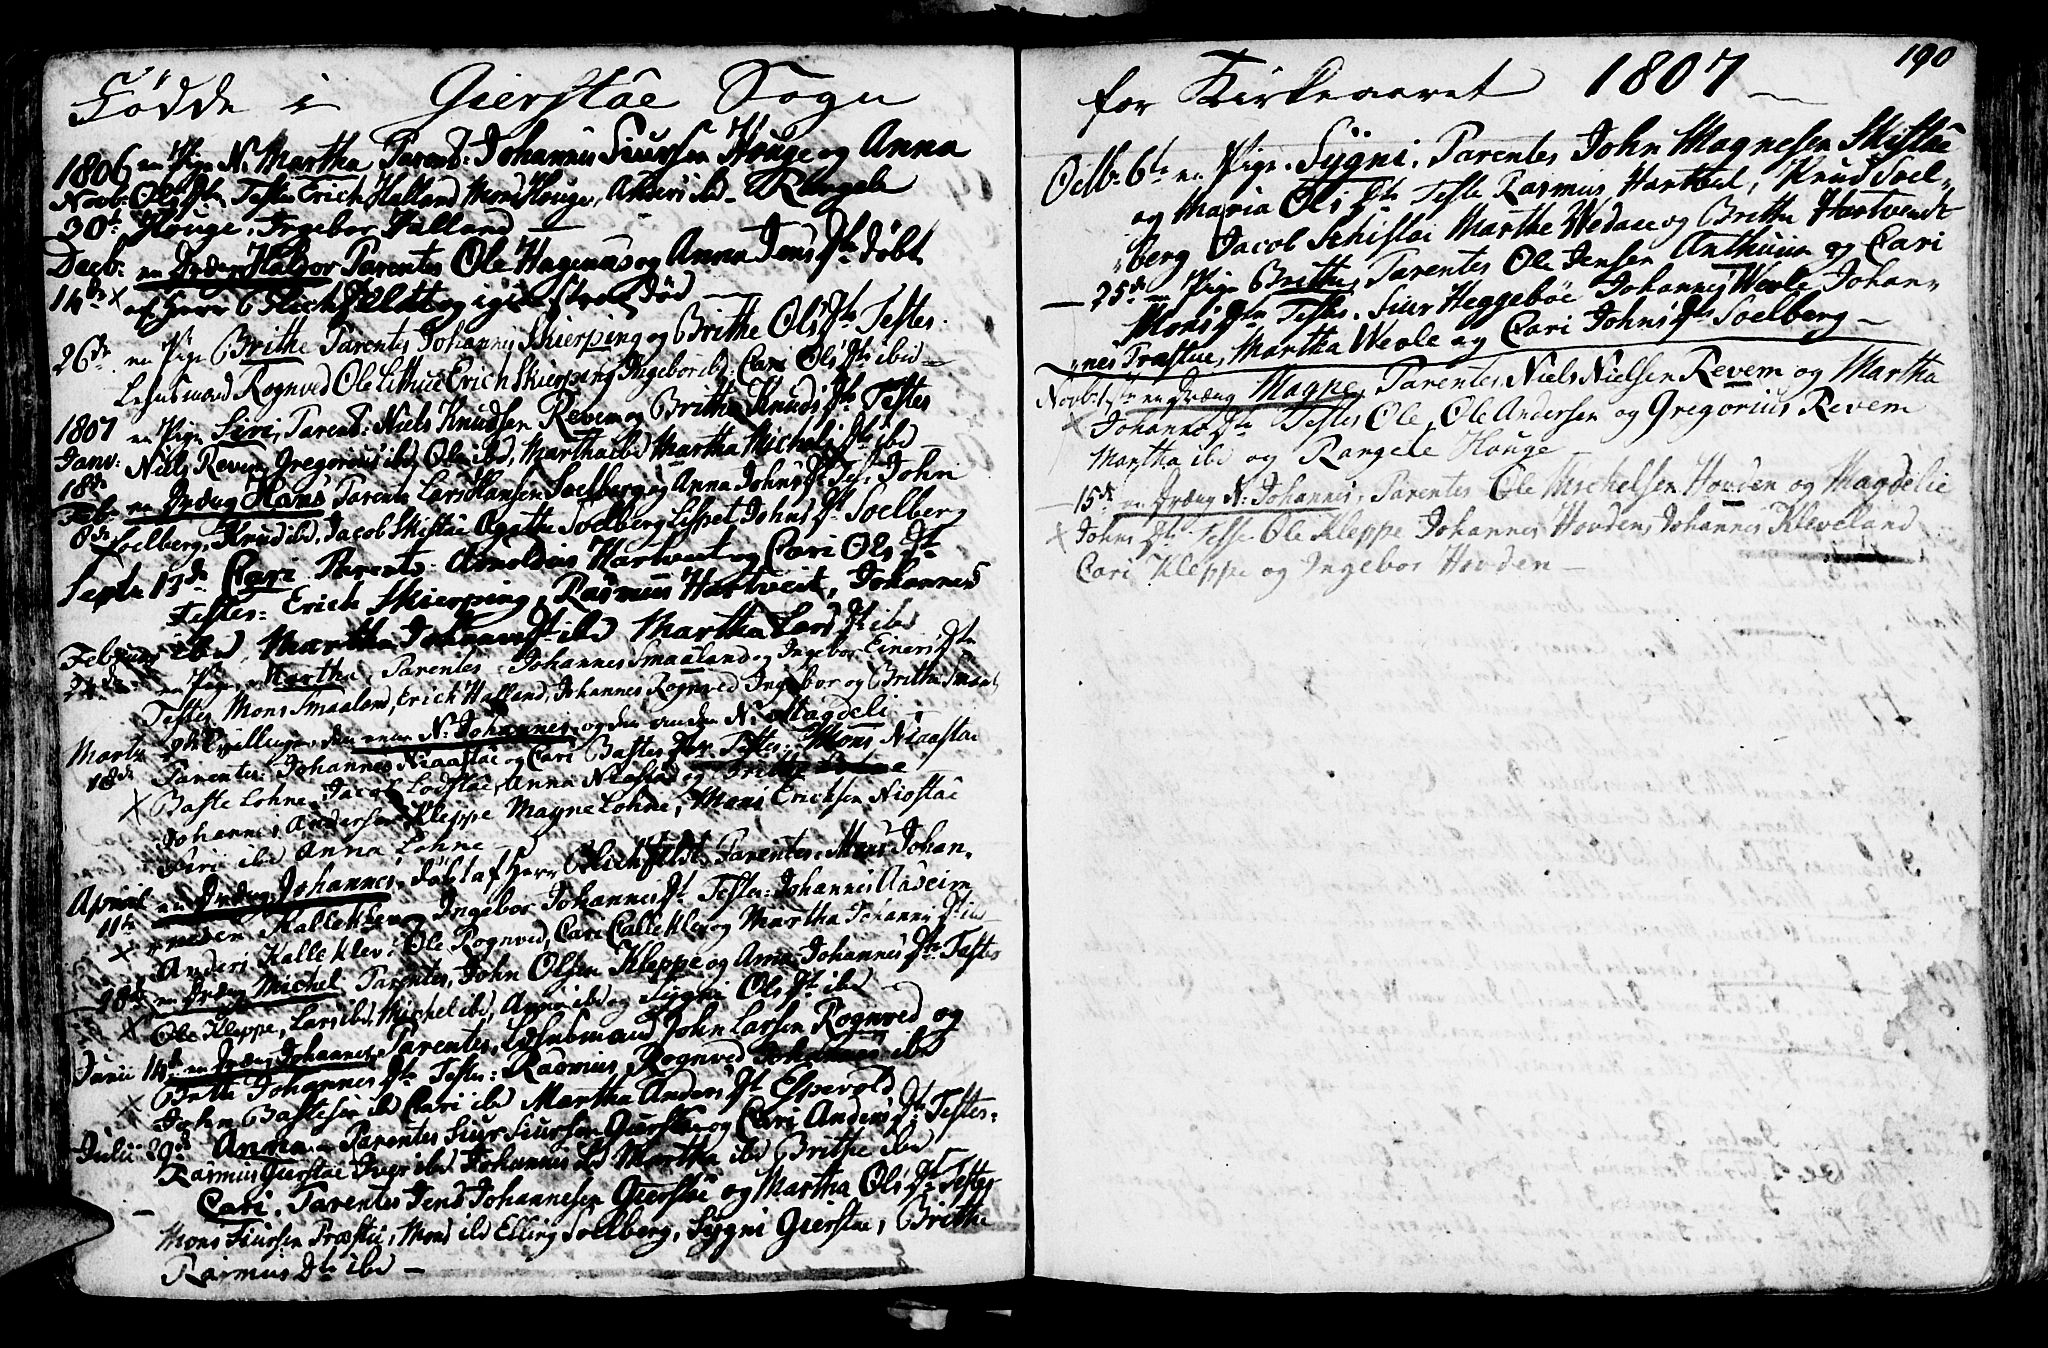 Fødde i Gierstâe Sogn
1806 en Pige N. Martha Parent: Johannes Siursen Houge og Anna
Novb: Ols Dtr Testes Erich Halland Mons Houge, Anders ibd Rangele
30te Houge, Ingebor Halland
Decb: en Dreng Halvor Parentes Ole Hagenus og Anna Jens Dtr døbt
14de af Herr Blichfeldt og igien strax død
26de en Pige Brithe Parentes Johannes Skierping og Brithe Ols Dtr Testes
Lehnsmand Rognved Ole Erich Skierping Ingebor ibd: Cari Ols Dtr ibid
1807 en Pige Siri, Parent: Niels Knudsen Revem og Britha Knuds Dtr Testes
Janv: Niels Revem Gregorius ibd Ole ibd, Martha ibd Martha Michels Dtr ibd
18de
Feb: en Dreng Hans Parents Lars Hansen Soelberg og Anna Johns Dtr Tes: John
8de Soelberg, Knud ibd, Jacob Skistâe Agatha Soelberg Lispet Johns Dtr Soelberg
Septr 13de Cari Parents: Arnoldus Hartveit og Cari Ols Dtr
Testes: Erich Skierping, Rasmus Hartveit, Johannes
ibd Martha Johannes Dtr ibd Martha Lars Dtr ibd
Februar en Pige, Martha, Parentes Johannes Smaaland og Ingebor Einers Dtr
24de Testes Mons Smaaland, Erich Halland, Johannes Rognved Ingebor og Britha Smaal
Marts 2de Tvillinger, den eene N: Johannes, og den anden N: Magdeli
18de Parentes: Johannes Niaastâe og Cari Bastes Dtr Testes: Mons Niaastâe
Baste Lohne, Jacob Lodstâe, Anna Niostâe og Britha
Johannes Andersen Kleppe Magne Lohne, Mari Ericksen Niostâe
Siri ibd Anna Lohne
April en Dreng Johannes, døbt af Herr Blichfeldt, Parentes: Mons Johan,
11te nesen Kalleklev og Ingebor Johannes Dtr Testes: Johannes Aaseim
Anders Kalleklev: Ole Rognved, Cari Callekler og Martha Johannes Dtr ibd
28de en Dreng Michel Parentes, John Olsen Kleppe og Anna Johannes Dtr Testes
Ole Kleppe, Lars ibd, Michel ibd, Anna ibd og Sygni Ols Dtr ibd
Junii 14de en Dreng Johannes, Parentes, Lehnsmand John Larsen Rognved og
Brithe Johannes Dtr Testes: Rasmus Rognved Johannes ibd
John Bastesen ibd Cari ibd Martha Anders Dtr Espevold
Julii 29de Anna Parentes Siur Siursen Gierstâe og Cari Anders Dtr Testes:
Rasmus Gierstâe Iver ibd Johannes ibd Martha ibd Brithe ibd
Cari, Parentes Jens Johannesen Gierstâe og Martha Ols Dtr Testes
Mons Siursen Præstii, Mons ibd Elling Soelberg, Sygni Gierstae, Brithe
Rasmus Dtr ibd
190
for Kirkeaaret 1807
Octb. 6te en Pige. Sygni. Parentes John Magnesen Skistâe
og Maria Oli Dtr Teste Rasmus Hartveit, Knud Soel-
berg Jacob Schistai Marthe Wedaae og Britha Hartvendt
25de en Pige Brithe, Parentes Ole Jensen Anthuun og Cari
Mons Dtr Testes. Siur Heggebøe Johannes Wevle Johan-
nes Træstue, Martha Wevle og Cari Johns Dtr Soelberg
Novbr 1ste en Dreng Magne, Parentes Niels Nielsen Revem og Martha
Johannes Dtr Testes Ole, Ole Andersen og Gregorius Revem
Martha ibd og Rangele Houge
15de en Dreng N. Johannes, Parentes Ole Michelsen Hovden og Magdelie
Johns Dtr Teste Ole Kleppe Johannes Hovden, Johannes Kleveland
Cari Kleppe og Ingebor Hovden